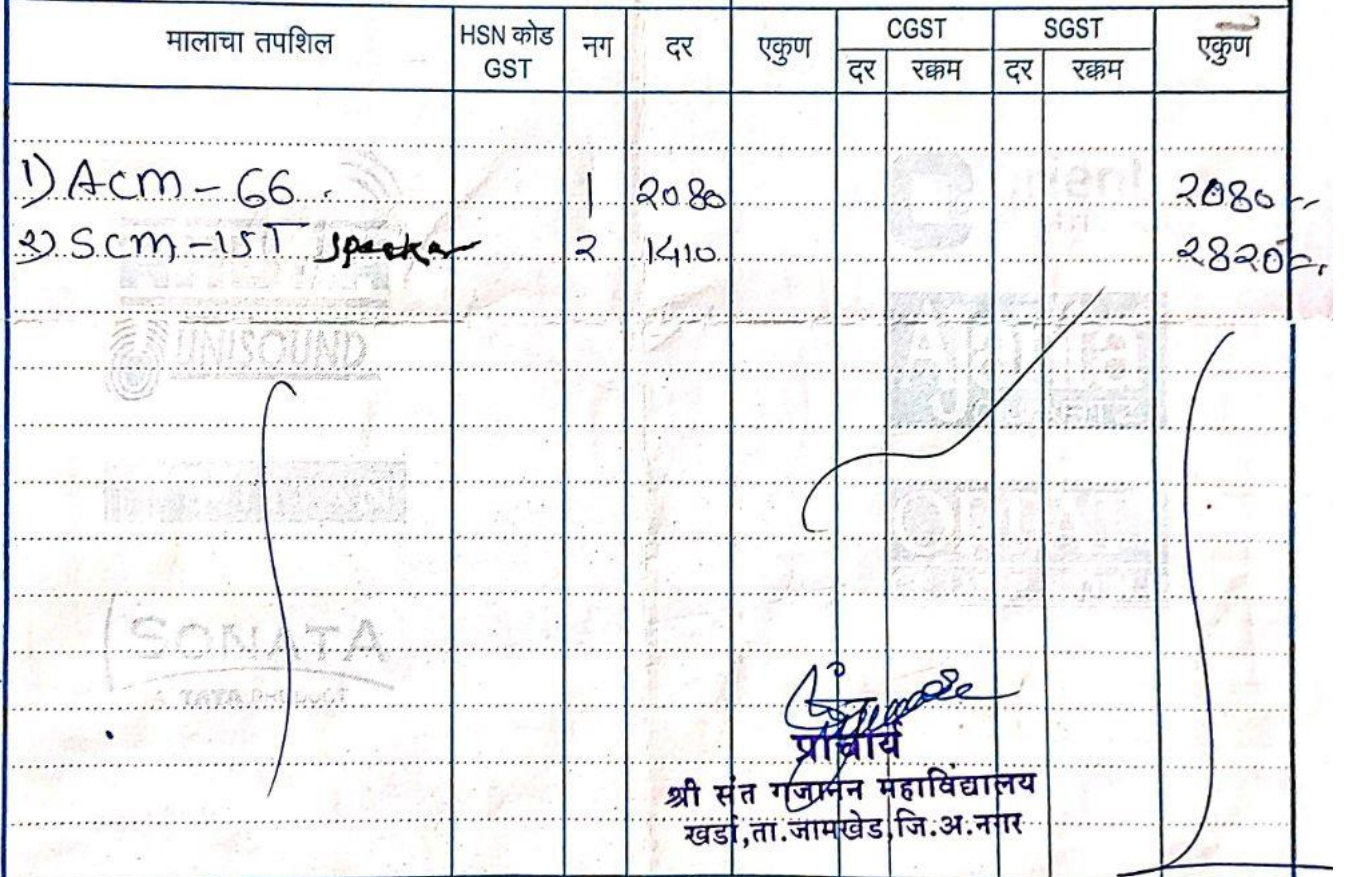 मालाचा तपशिल HSN कोड GST नग दर एकुण CGST SGST एकुण
दर रक्कम दर रक्कम
1) ACM - 66 1 2080 2080
2) SCM - 15T Speaker 2 1410 2820
UNISOUND
SONATA
प्राचार्य
श्री संत गजानन महाविद्यालय
खर्डा,ता.जामखेड,जि.अ.नगर